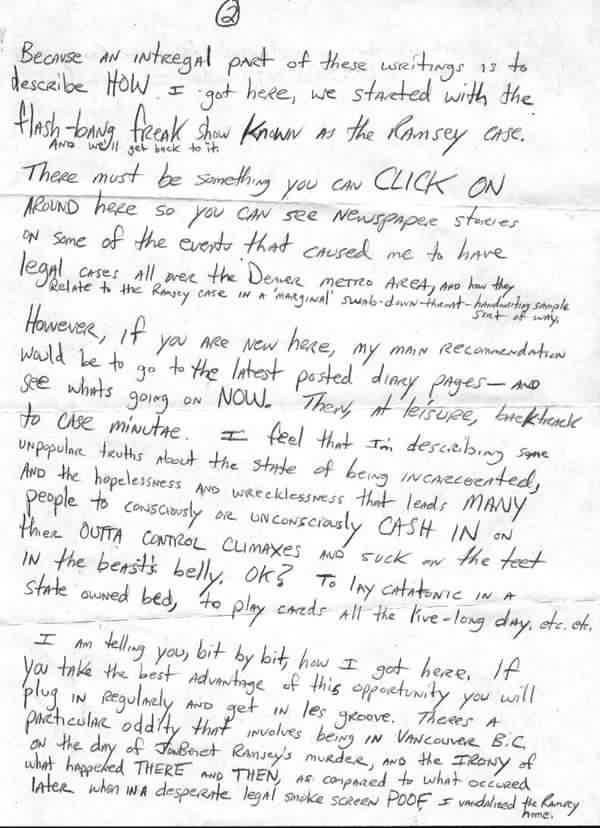 2
Because an intregal part of these writings is to
describe HOW I got here, we started with the
flash-bang freak show known as the Ramsey case.
And we'll get back to it.
There must be something you can CLICK ON
around here so you can see newspaper stories
on some of the events that caused me to have
legal cases all over the Denver metro area, and how they
relate to the Ramsey case in a 'marginal' swab-down-throat-handwriting sample
sort of way.
However, if you are new here, my main recommendation
would be to go to the latest posted diary pages — and
see whats going on NOW. Then, at leisure, backtrack
to case minutae. I feel that I'm describing some
unpopular truths about the state of being incarcerented,
and the hopelessness and wrecklessness that leads MANY
people to consciously or unconsciously CASH IN on
thier OUTTA CONTROL CLIMAXES and suck on the teet
in the beast's belly. OK? To lay catatonic in a
state owned bed, to play cards all the live-long day. etc. etc.
I am telling you, bit by bit, how I got here. If
you take the best advantage of this opportunity you will
plug in regularly and get in les groove. Theres a
particular oddity that involves being in Vancouver B.C.
on the day of JonBenet Ramsey's murder, and the IRONY of
what happened THERE AND THEN, as compared to what occured
later when in a desperate legal smoke screen POOF, I vandalized the Ramsey
home.